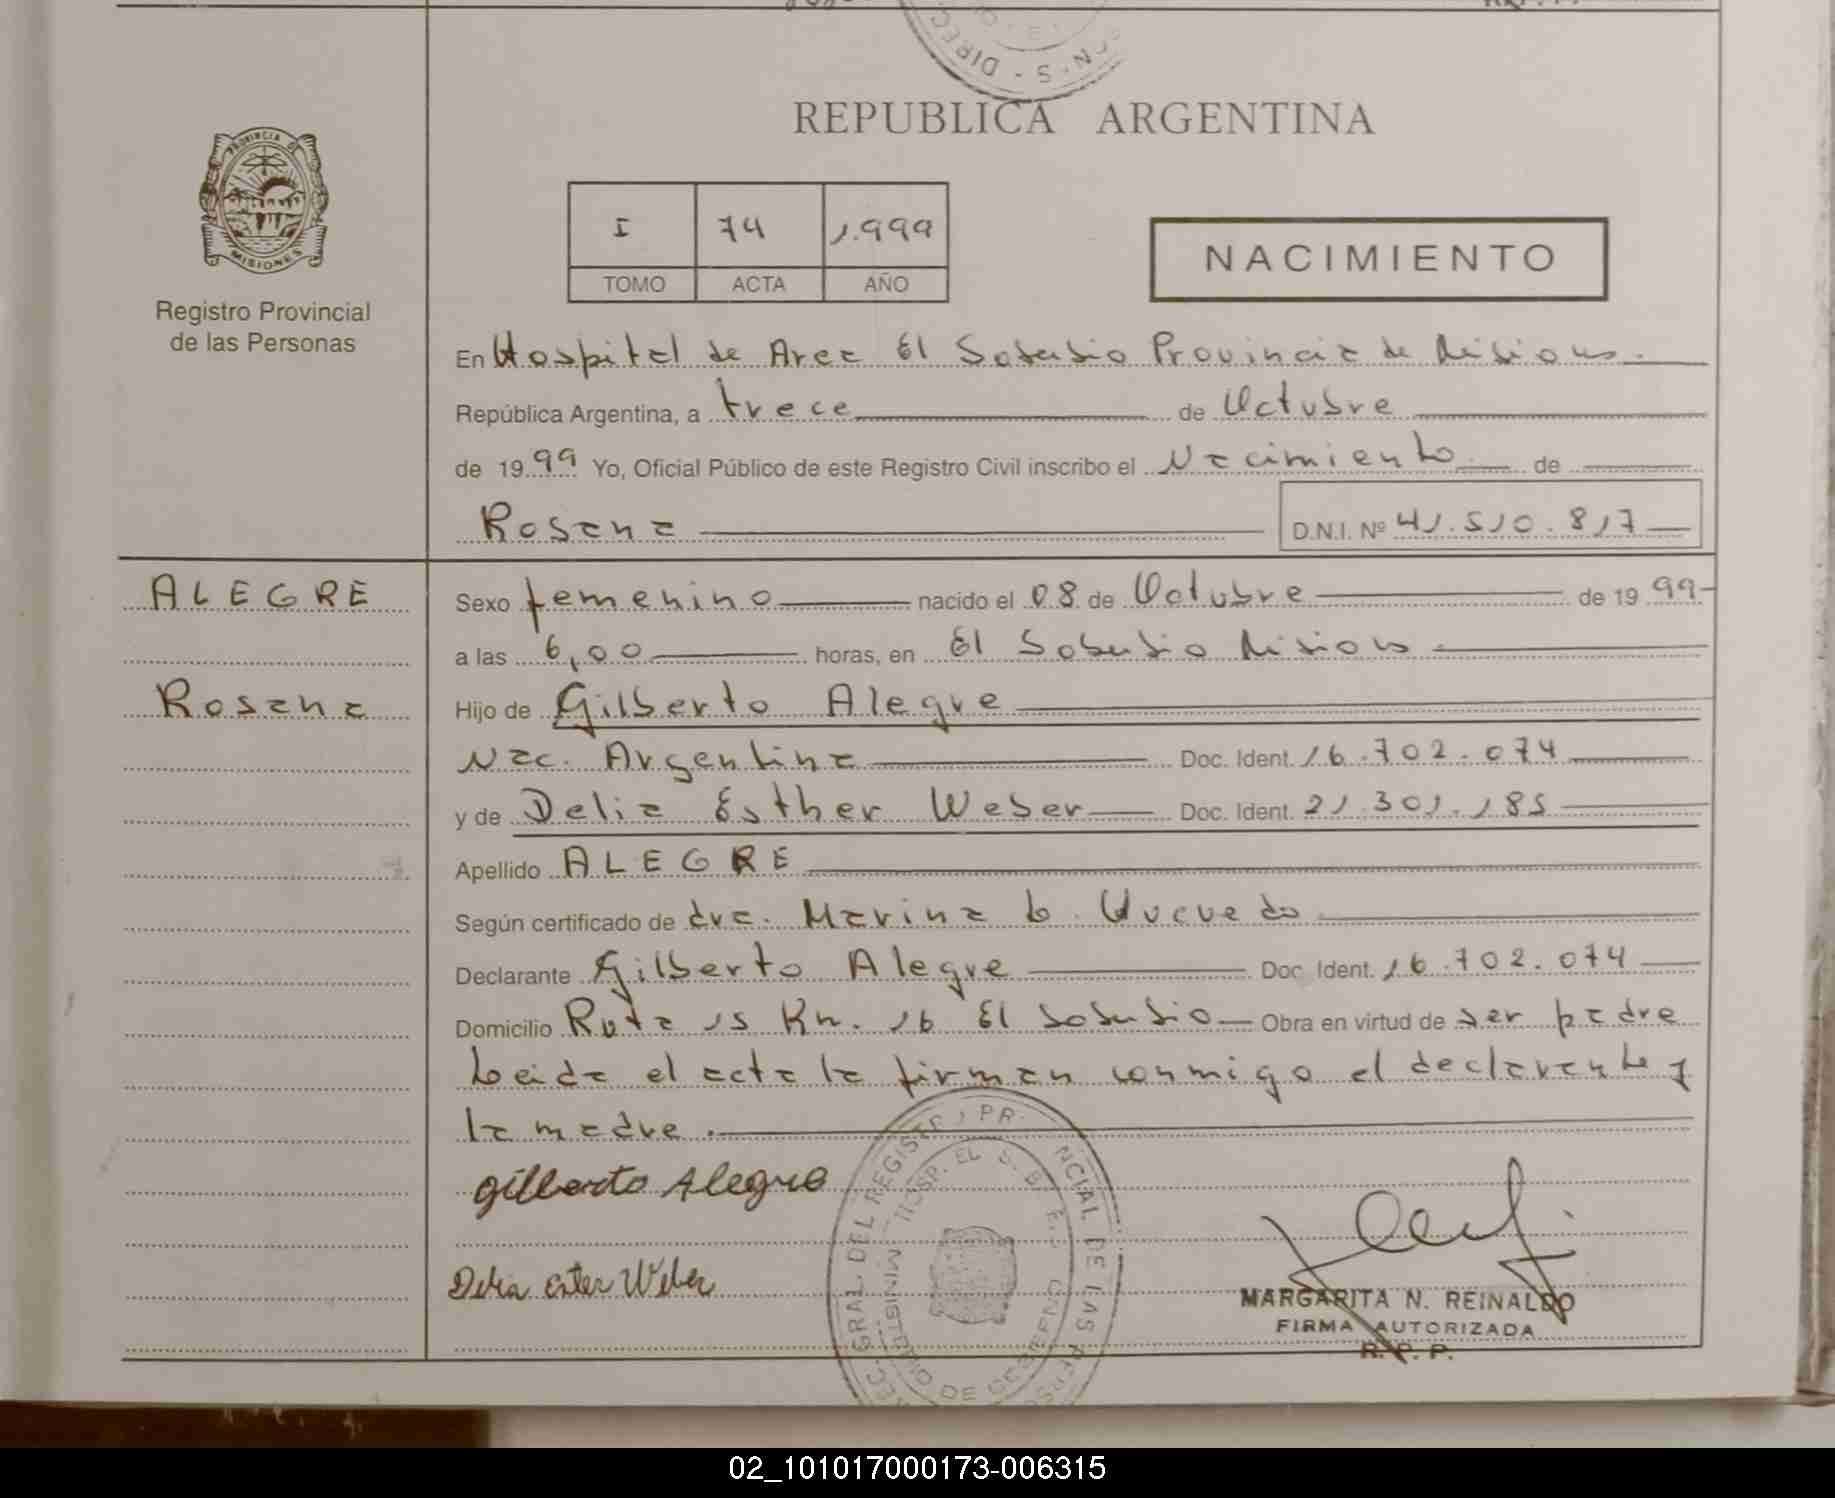 DIREC N-S
REPUBLICA ARGENTINA
PROVINCIA DE MISIONES
Registro Provincial
de las Personas
I 74 1.999
TOMO ACTA AÑO
NACIMIENTO
En Hospital de Area El Soberbio Provincia de Misiones.
República Argentina, a trece de Octubre
de 1999 Yo, Oficial Público de este Registro Civil inscribo el Nacimiento de
Rosana D.N.I. Nº 41.510.817
ALEGRE
Rosana
Sexo femenino nacido el 08 de Octubre de 1999
a las 6,00 horas, en El Soberbio Misiones
Hijo de Gilberto Alegre
Nac. Argentina Doc. Ident. 16.702.074
y de Delia Esther Weber Doc. Ident. 21.301.185
Apellido ALEGRE
Según certificado de dra. Marina
Declarante Gilberto Alegre Doc. Ident. 16.702.074
Domicilio Ruta 15 Km. 16 El Soberbio Obra en virtud de ser padre
Leida el acta la firman conmigo el declarante y
la madre.
Gilberto Alegre
Delia Ester Weber
GRAL DEL REGISTR PR NCIAL DE LAS PERS
HOSP. EL S. B. E.
MINISTERIO DE GOBIERNO
MARGARITA N. REINALDO
FIRMA AUTORIZADA
R. P. P.
02_101017000173-006315